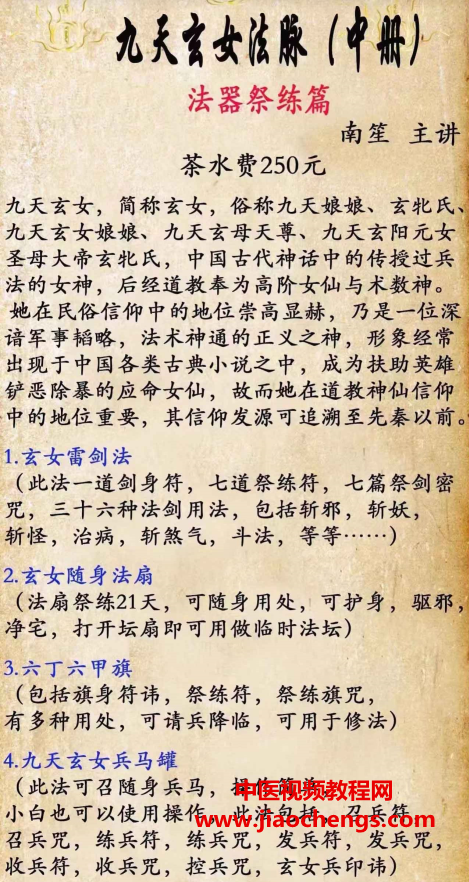 九天玄女法脉（中册）
法器祭练篇
南笙 主讲
茶水费250元
九天玄女，简称玄女，俗称九天娘娘、玄牝氏、
九天玄女娘娘、九天玄母天尊、九天玄阳元女
圣母大帝玄牝氏，中国古代神话中的传授过兵
法的女神，后经道教奉为高阶女仙与术数神。
她在民俗信仰中的地位崇高显赫，乃是一位深
谙军事韬略，法术神通的正义之神，形象经常
出现于中国各类古典小说之中，成为扶助英雄
铲恶除暴的应命女仙，故而她在道教神仙信仰
中的地位重要，其信仰发源可追溯至先秦以前。
1.玄女雷剑法
（此法一道剑身符，七道祭练符，七篇祭剑密
咒，三十六种法剑用法，包括斩邪，斩妖，
斩怪，治病，斩煞气，斗法，等等……）
2.玄女随身法扇
（法扇祭练21天，可随身用处，可护身，驱邪，
净宅，打开坛扇即可用做临时法坛）
3.六丁六甲旗
（包括旗身符讳，祭练符，祭练旗咒，
有多种用处，可请兵降临，可用于修法）
4.九天玄女兵马罐
（此法可召随身兵马，
中医视频教程网
小白也可以使用操作，此法包括，召兵符，
www.jiaochengs.com
召兵咒，练兵符，练兵咒，发兵符，发兵咒，
收兵符，收兵咒，控兵咒，玄女兵印讳）